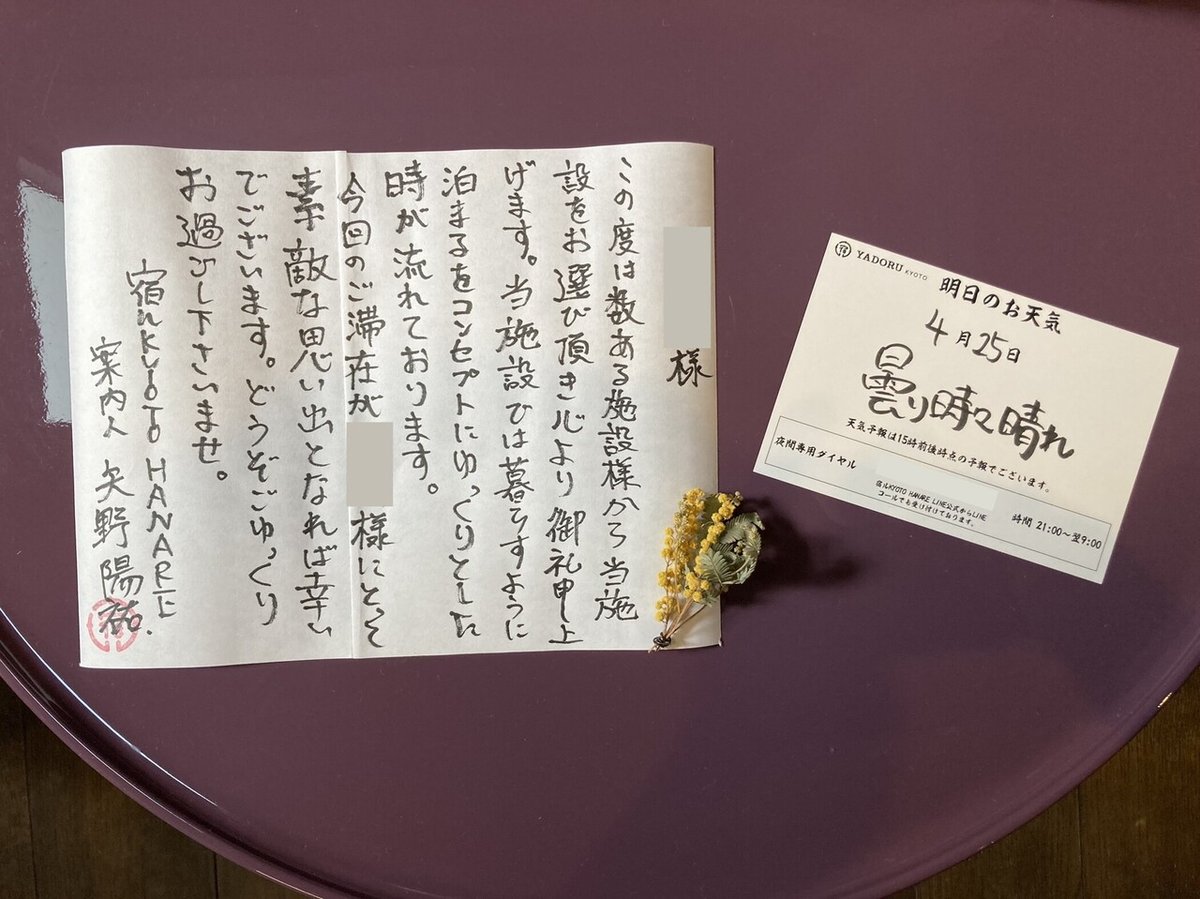 様
この度は数ある施設様から当施
設をお選び頂き心より御礼申し上
げます。当施設では暮らすように
泊まるをコンセプトにゆっくりとした
時が流れております。
今回のご滞在が
様にとって
素敵な思い出となれば幸い
でございます。どうぞごゆっくり
お過ごし下さいませ。
宿ルKYOTO HANARE
案内人 矢野陽祐.
YADORU KYOTO
明日のお天気
4月25日
曇り時々晴れ
天気予報は15時前後時点の予報でございます。
夜間専用ダイヤル
宿ルKYOTO HANARE LINE公式からLINE
コールでも受け付けております。
時間 21:00〜翌9:00